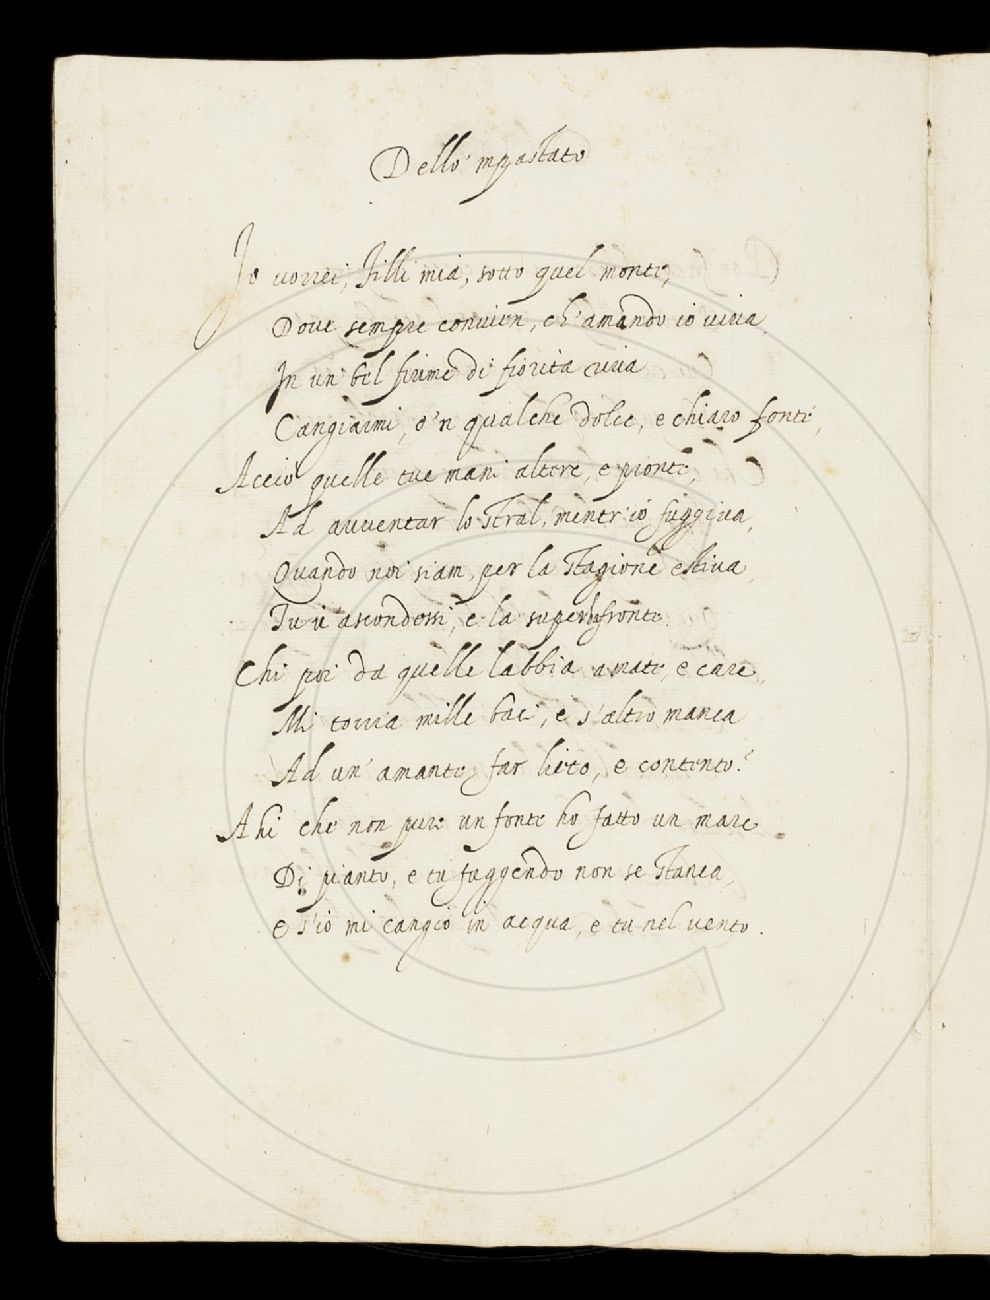 Dello 'mpastato
Io uorrei, Filli mia, sotto quel monte,
Doue sempre conuien, ch'amando io uiua
In un bel fiume di fiorita riua
Cangiarmi, o'n qualche dolce, e chiaro fonte,
Acciò quelle tue mani altere, e pronte,
Ad auuentar lo stral, mentr'io fuggiua,
Quando noi siam, per la stagione estiua,
Tu ui ascondessi, e la superba fronte.
Chi poi da quelle labbia amate, e care,
Mi torria mille baci, e s'altro manca
Ad un' amante far lieto, e contento?
Ahi che non pure un fonte ho fatto un mare
Di pianto, e tu fuggendo non se stanca,
E s'io mi cangio in acqua, e tu nel uento.